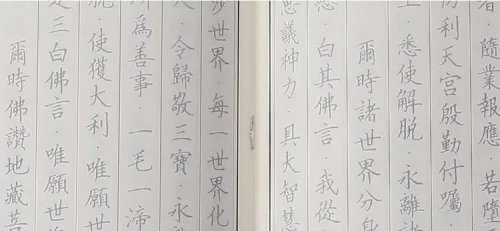 者．隨業報應．若墮
利天宮殷勤付囑．
．悉使解脫．永離諸
爾時諸世界分身
．白其佛言．我從
思議神力．具大智慧
沙世界．每一世界化
人．令歸敬三寶．永
所為善事．一毛一渧
脫．使獲大利．唯願世
是三白佛言．唯願世
爾時佛讚地藏菩